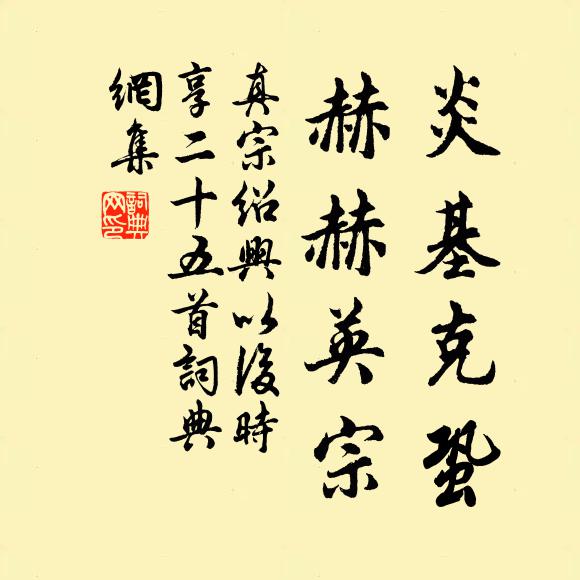 炎基克蛩
赫赫英宗
真宗紹興以後時
享二十五首詞典
網集
詞典網印